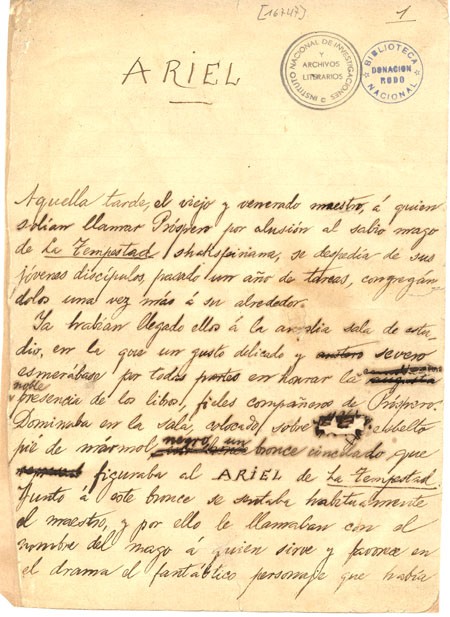 [16747]
1
INSTITUTO NACIONAL DE INVESTIGACIONES Y ARCHIVOS LITERARIOS
BIBLIOTECA NACIONAL
DONACION RODO
ARIEL
Aquella tarde, el viejo y venerado maestro, á quien
solían llamar Próspero por alusión al sabio mago
de La Tempestad shakspiriana, se despedía de sus
jóvenes discípulos, pasado un año de tareas, congregán-
dolos una vez más á su alrededor.
Ya habían llegado ellos á la amplia sala de estu-
dio, en la que un gusto delicado y austero severo
esmerábase por todas partes en honrar la
noble
presencia de los libros, fieles compañeros de Próspero.
Dominaba en la sala, colocado, sobre esbelto
pié de mármol negro, un bronce cincelado que
figuraba al ARIEL de La Tempestad.
Junto á este bronce se sentaba habitualmente
el maestro, y por ello le llamaban con el
nombre del mago á quien sirve y favorece en
el drama el fantástico personaje que había